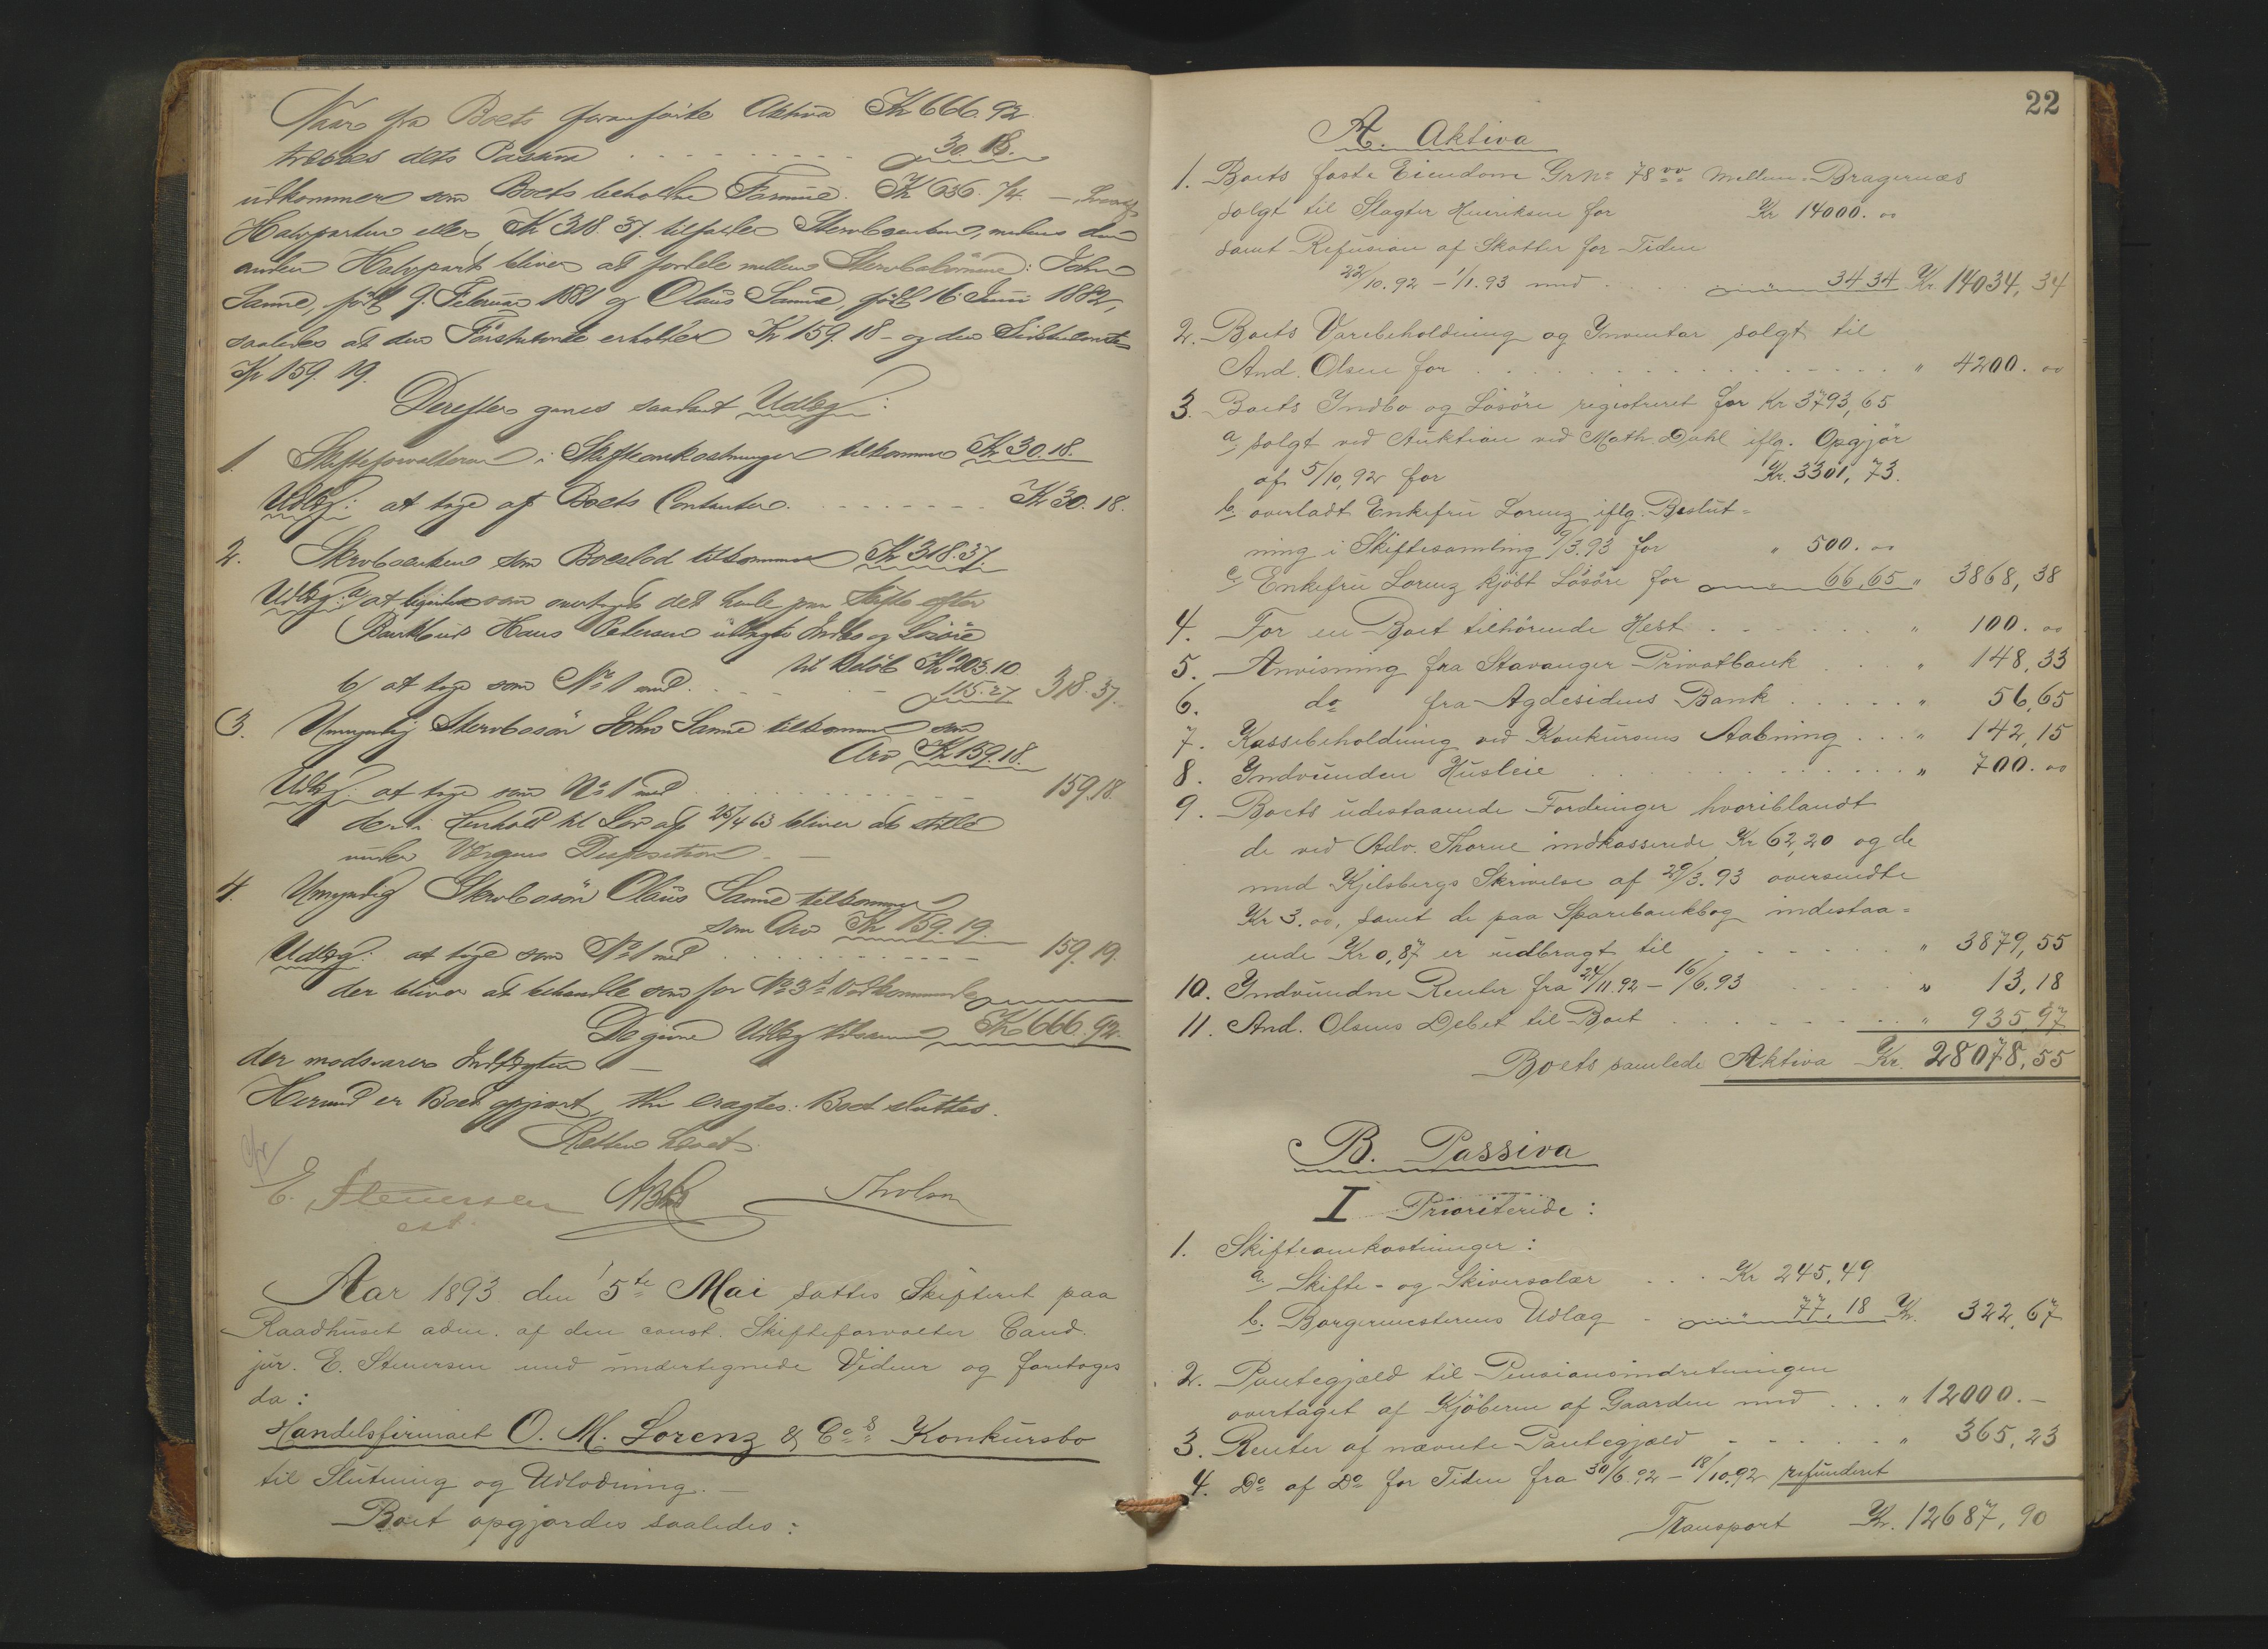 Naar fra Boets foranførte Aktiva Kr 666.92
trækkes dets Passiva . . . . . . . . . 30.18.
udkommer som Boets beholdne Formue. Kr 636.74. — hvoraf
Halvparten eller Kr 318.37. tilfalder Stervboenken, medens den
anden Halvpart bliver at fordele mellem Stervbobørnene: John
Sanne, født 9. Februar 1881 og Olaus Sanne, født 16. Juni 1882,
saaledes at den Førstnævnte erholder Kr 159.18 - og den Sidstnævnte
Kr 159.19.
Derefter gives saadant Udlæg:
1. Skifteforvalteren i Skifteomkostninger tilkommer Kr 30.18.
Udlæg: at tage af Boets Contanter. . . . . . . . . Kr 30.18.
2. Stervboenken som Boeslod tilkommer Kr 318.37.
Udlæg: a/ at som overtaget det hele paa Skifte efter
Hans Petersen udlagte Indbo og Løsøre
til Beløb Kr 203.10
b/ at tage som No 1 med . . . . 115.27 318.37.
3. Umyndig Stervbosøn John Sanne tilkommer som
Arv Kr 159.18.
Udlæg: at tage som No 1 med . . . . . . . . . 159.18.
der i Henhold til Lov af 25/4 63 bliver at stille
under Værgens Disposition. —
4. Umyndig Stervbosøn Olaus Sanne tilkommer
som Arv Kr 159.19.
Udlæg: at tage som No 1 med . . . . . . . . . 159.19.
der bliver at behandle som for No 3s Vedkommende
De givne Udlæg tilsammen Kr 666.92.
der modsvarer Indtægten —
Hermed er Boet opgjort, thi eragtes: Boet sluttes.
Retten hævet.
E. Stenersen
cst.
Aar 1893 den 5te Mai sattes Skifteret paa
Raadhuset adm. af den const. Skifteforvalter Cand.
jur. E. Stenersen med undertegnede Vidner og foretoges
da:
Handelsfirmaet O. M. Lorenz & Co.s Konkursbo
til Slutning og Udlodning. —
Boet opgjordes saaledes:
22
A. Aktiva
1. Boets faste Eiendom Gr No 78 vv Mellem-Bragernæs
solgt til Slagter Henriksen for Kr 14000. oo
samt Refusion af Skatter for Tiden
22/10.92 – 1/1.93 med . . . 34 34 Kr. 14034, 34
2. Boets Varebeholdning og Inventar solgt til
And. Olsen for . . . . . . . . . . . . " 4200. oo
3. Boets Indbo og Løsøre registreret for Kr 3793,65
a, solgt ved Auktion ved Math. Dahl iflg. Opgjør
af 5/10,92 for Kr. 3301, 73.
b, overladt Enkefru Lorenz iflg. Beslut=
ning i Skiftesamling 9/3.93 for " 500. oo
c, Enkefru Lorenz kjøbt Løsøre for " 66,65 " 3868, 38
4. For en Boet tilhørende Hest . . . . . . " 100. oo
5. Anvisning fra Stavanger Privatbank . . . " 148, 33
6. do fra Agdesidens Bank . . . . . " 56,65
7. Kassebeholdning ved Konkursens Aabning . . . " 142, 15
8. Indvunden Husleie . . . . . . . . . . " 700. oo
9. Boets udestaaende Fordringer hvoriblandt
de ved Adv. Thorne indkasserede Kr 62,20 og de
med Kjelsbergs Skrivelse af 29/3.93 oversendte
Kr 3. oo, samt de paa Sparebankbog indestaa=
ende Kr 0,87 er udbragt til . . . . . . " 3879, 55
10. Indvundne Renter fra 24/11.92 – 16/6.93 . . . . " 13, 18
11. And. Olsens Debet til Boet . . . . . . . . " 935,97
Boets samlede Aktiva Kr. 28078,55
B. Passiva
I Prioriterede:
1. Skifteomkostninger:
a. Skifte- og Skriversalær . . . Kr 245,49
b. Borgermesterens Udlæg . " 77,18 Kr. 322,67
2. Pantegjæld til Pensionsindretningen
overtaget af Kjøberen af Gaarden med . . . " 12000. –
3. Renter af nævnte Pantegjæld - - . . . . " 365,23
4. Do af Do for Tiden fra 30/6.92 – 18/10.92 refunderet
Transport Kr. 12687,90